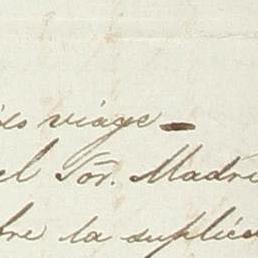 viage
el Sõr. Madri
bre la suplica